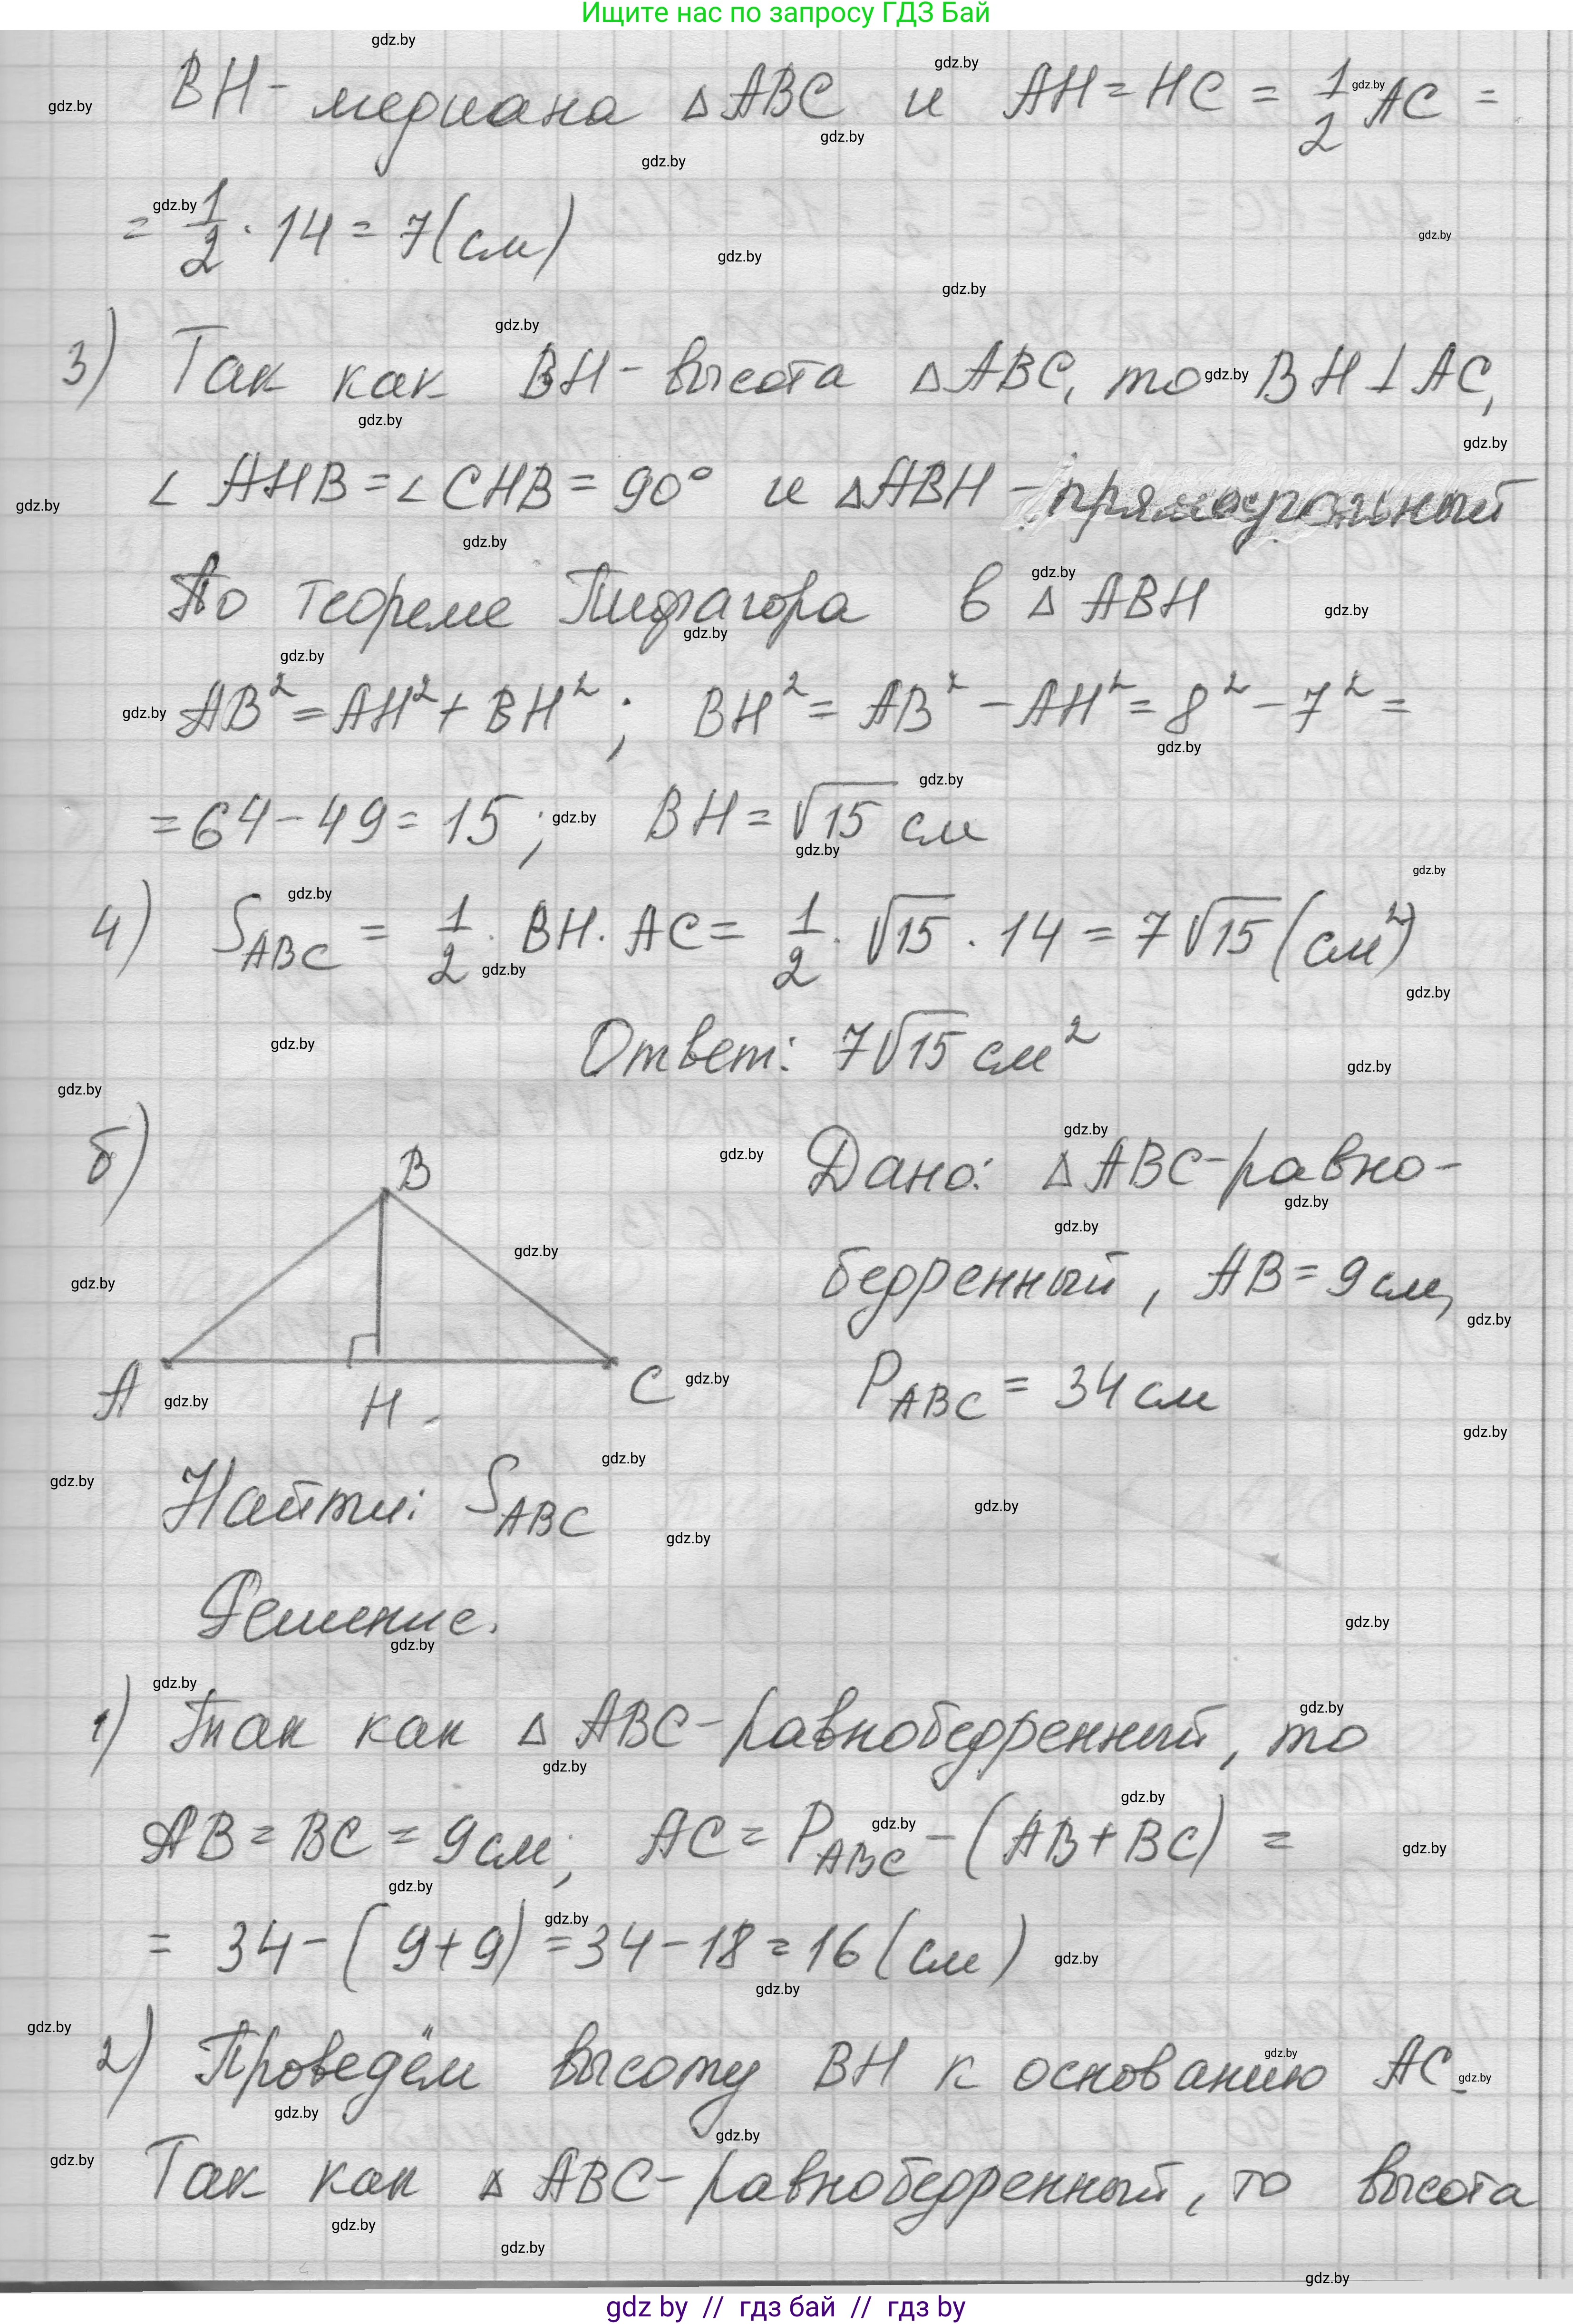 Ищите нас по запросу ГДЗ Бай
BH - медиана △ABC и AH = HC = 1/2 AC =
= 1/2 · 14 = 7 (см)
3) Так как BH - высота △ABC, то BH ⊥ AC,
∠ AHB = ∠ CHB = 90° и △ABH - прямоугольный
По теореме Пифагора в △ ABH
AB² = AH² + BH² ; BH² = AB² - AH² = 8² - 7² =
= 64 - 49 = 15 ; BH = √15 см
4) S ABC = 1/2 · BH · AC = 1/2 · √15 · 14 = 7√15 (см²)
Ответ: 7√15 см²
б) B Дано: △ ABC - равно-
бедренный, AB = 9 см,
A H C P ABC = 34 см
Найти: S ABC
Решение.
1) Так как △ ABC - равнобедренный, то
AB = BC = 9 см; AC = P ABC - (AB + BC) =
= 34 - (9 + 9) = 34 - 18 = 16 (см)
2) Проведём высоту BH к основанию AC.
Так как △ ABC - равнобедренный, то высота
gdz by // гдз бай // гдз by